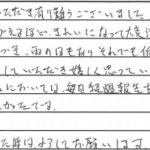 いただき有り難うございました
がえるほど、きれいになって大変
づき、雨の日もありそれでも
していただき嬉しく思ってい
においては、毎日経過報告を
かったです。
た際はよろしくお願いします